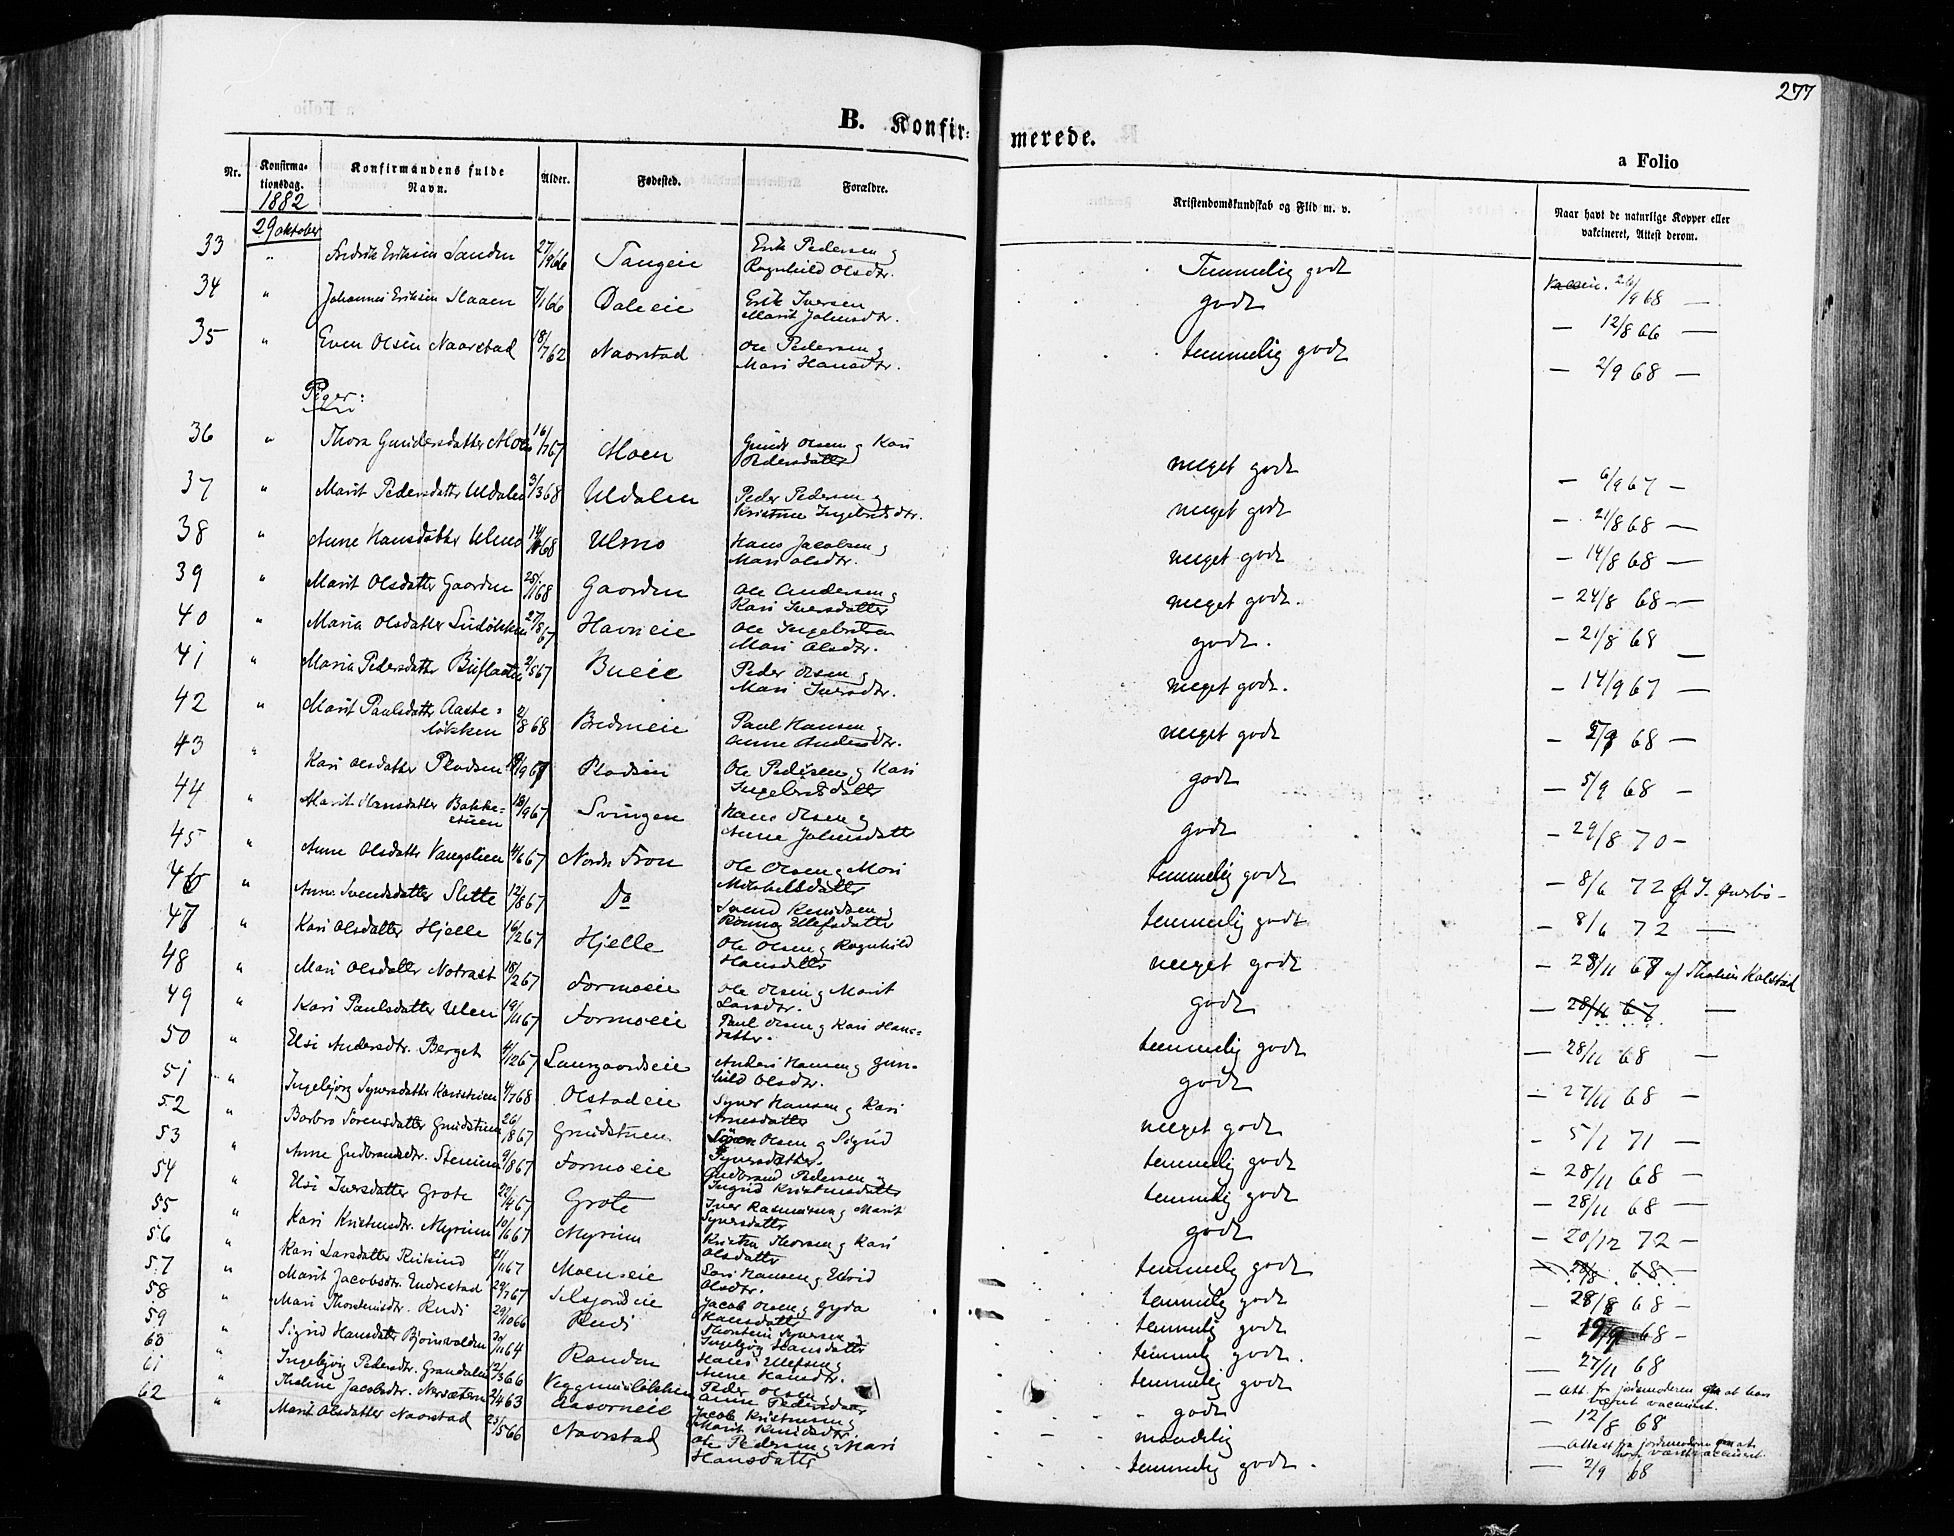 277
B. Konfir-
merede.
a Folio
Nr.
Konfirma-
tionsdag.
Konfirmandens fulde
Navn.
Alder.
Fødested.
Forældre.
Kristendomskundskab og Flid m. v.
Naar havt de naturlige Kopper eller
vakcineret, Attest derom.
1882
29 oktober
33 " Fredrik Eriksen Sanden 27/9 66 Tangeie Erik Pedersen og Ragnhild Olsdtr. Temmelig godt Vaccin. /9 68 —
34 " Johannes Eriksen Slaaen 7/1 66 Daleeie Erik Iversen Marit Johnsdtr. godt — 12/8 66 —
35 " Even Olsen Naorstad 18/7 62 Naorstad Ole Pedersen og Mari Hansdtr. temmelig godt — 2/9 68 —
Piger:
36 " Thora Gundersdatter Moen 16/7 67 Moen Olsen og Kari Pedersdatter meget godt — 6/9 67 —
37 " Marit Pedersdatter Uldalen 3/3 68 Uldalen Peder Pedersen og Kristine Ingebretsdtr. meget godt — 21/8 68 —
38 " Anne Hansdatter Ulmo 68 Ulmo Hans Jacobsen og Mari Olsdtr. meget godt — 14/8 68 —
39 " Marit Olsdatter Gaarden 25/1 68 Gaarden Ole Andersen og Kari Iversdatter meget godt. — 24/8 68 —
40 " Maria Olsdatter 27/8 67 Havneie Ole Ingebretsen Mari Olsdtr. godt. — 21/8 68 —
41 " Maria Pedersdatter 2/5 67 Bueie Peder Olsen og Mari Iversdtr. meget godt. — 14/9 67 —
42 " Marit Paulsdatter Aaste-løkken 2/8 68 Bredeneie Paul Hansen og Anne Andersdtr. meget godt — 68 —
43 " Kari Olsdatter Pladsen 67 Pladsen Ole Pedersen og Kari Ingebretsdatter godt — 5/9 68 —
44 " Marit Hansdatter Bakke-stuen 18/9 67 Svingen Hans Olsen og Anne Johnsdatter godt — 29/8 70 —
45 " Anne Olsdatter Vangstuen 4/6 67 Nordre Fron Ole Olsen og Mari Mikkelsdatter temmelig godt — 8/6 72
46 " Anne Svendsdatter Slette 12/8 67 Do Svend Knudsen og Ronnog Ellefsdatter temmelig godt — 8/6 72 —
47 " Kari Olsdatter Hjelle 16/2 67 Hjelle Ole Olsen og Ragnhild Hansdatter meget godt — 28/11 67 af Kolstad
48 " Mari Olsdatter 18/2 67 Formoeie Ole Olsen og Marit Larsdtr. godt — 28/11 67 —
49 " Kari Paulsdatter Ulen 19/11 67 Formoeie Paul Olsen og Kari Hans-datter. temmelig godt — 28/11 68 —
50 " Elsi Andersdtr. Berget 4/12 67 Laurgaardseie Anders Hansen og Gun-hild Olsdtr. godt — 27/11 68 —
51 " Ingebjørg Syversdatter 4/7 68 Olstadeie Syver Hansen og Kari Arnesdatter meget godt — 5/1 71 —
52 " Barbro Sørensdatter Grudstuen 26/8 67 Grudstuen Søren Olsen og Sigrid Syversdatter. temmelig godt — 28/11 68 —
53 " Anne Gudbrandsdtr. Stenen 9/8 67 Formoeie Gudbrand Pedersen og Ingrid Kristensdatter temmelig godt — 28/11 68 —
54 " Elsi Iversdatter Grote 22/4 67 Grote Iver Rasmussen og Marit Syversdatter godt — 20/12 72 —
55 " Kari Kristensdtr. Myrum 10/6 67 Myrum Kristen Thorsen og Kari Olsdatter temmelig godt — 68 —
56 " Kari Larsdatter 21/11 67 Moenseie Lars Hansen og Olsdtr. temmelig godt — 28/8 68 —
57 " Marit Jacobsdtr. Endrestad 29/7 67 Selsjordeie Jacob Olsen og Gyda Hansdatter temmelig godt — 68 —
58 " Mari Thorsteinsdtr. Rudi 29/10 66 Rudi Thorstein Syversen og Ingebjørg Hansdatter temmelig godt. — 27/11 68
59 " Sigrid Hansdatter Bjørnvolden 20/11 64 Randen Hans Ellefsen og Anne Hansdtr. temmelig godt — Att. fr jordemoderen at have været vaccineret.
60 " Ingebjørg Pedersdtr. Grandalen 12/3 66 Peder Olsen og Anne Pedersdatter godt — 12/8 68
61 " Tholine Jacobsdtr. 2/4 63 Aasorneie Jacob Kristensen og Marit Knudsdtr. maadelig — Attest fra jordemoderen at have været vaccineret.
62 " Marit Olsdatter Naorstad 25/5 66 Naorstad Ole Pedersen og Mari Hansdatter temmelig godt. — 2/9 68